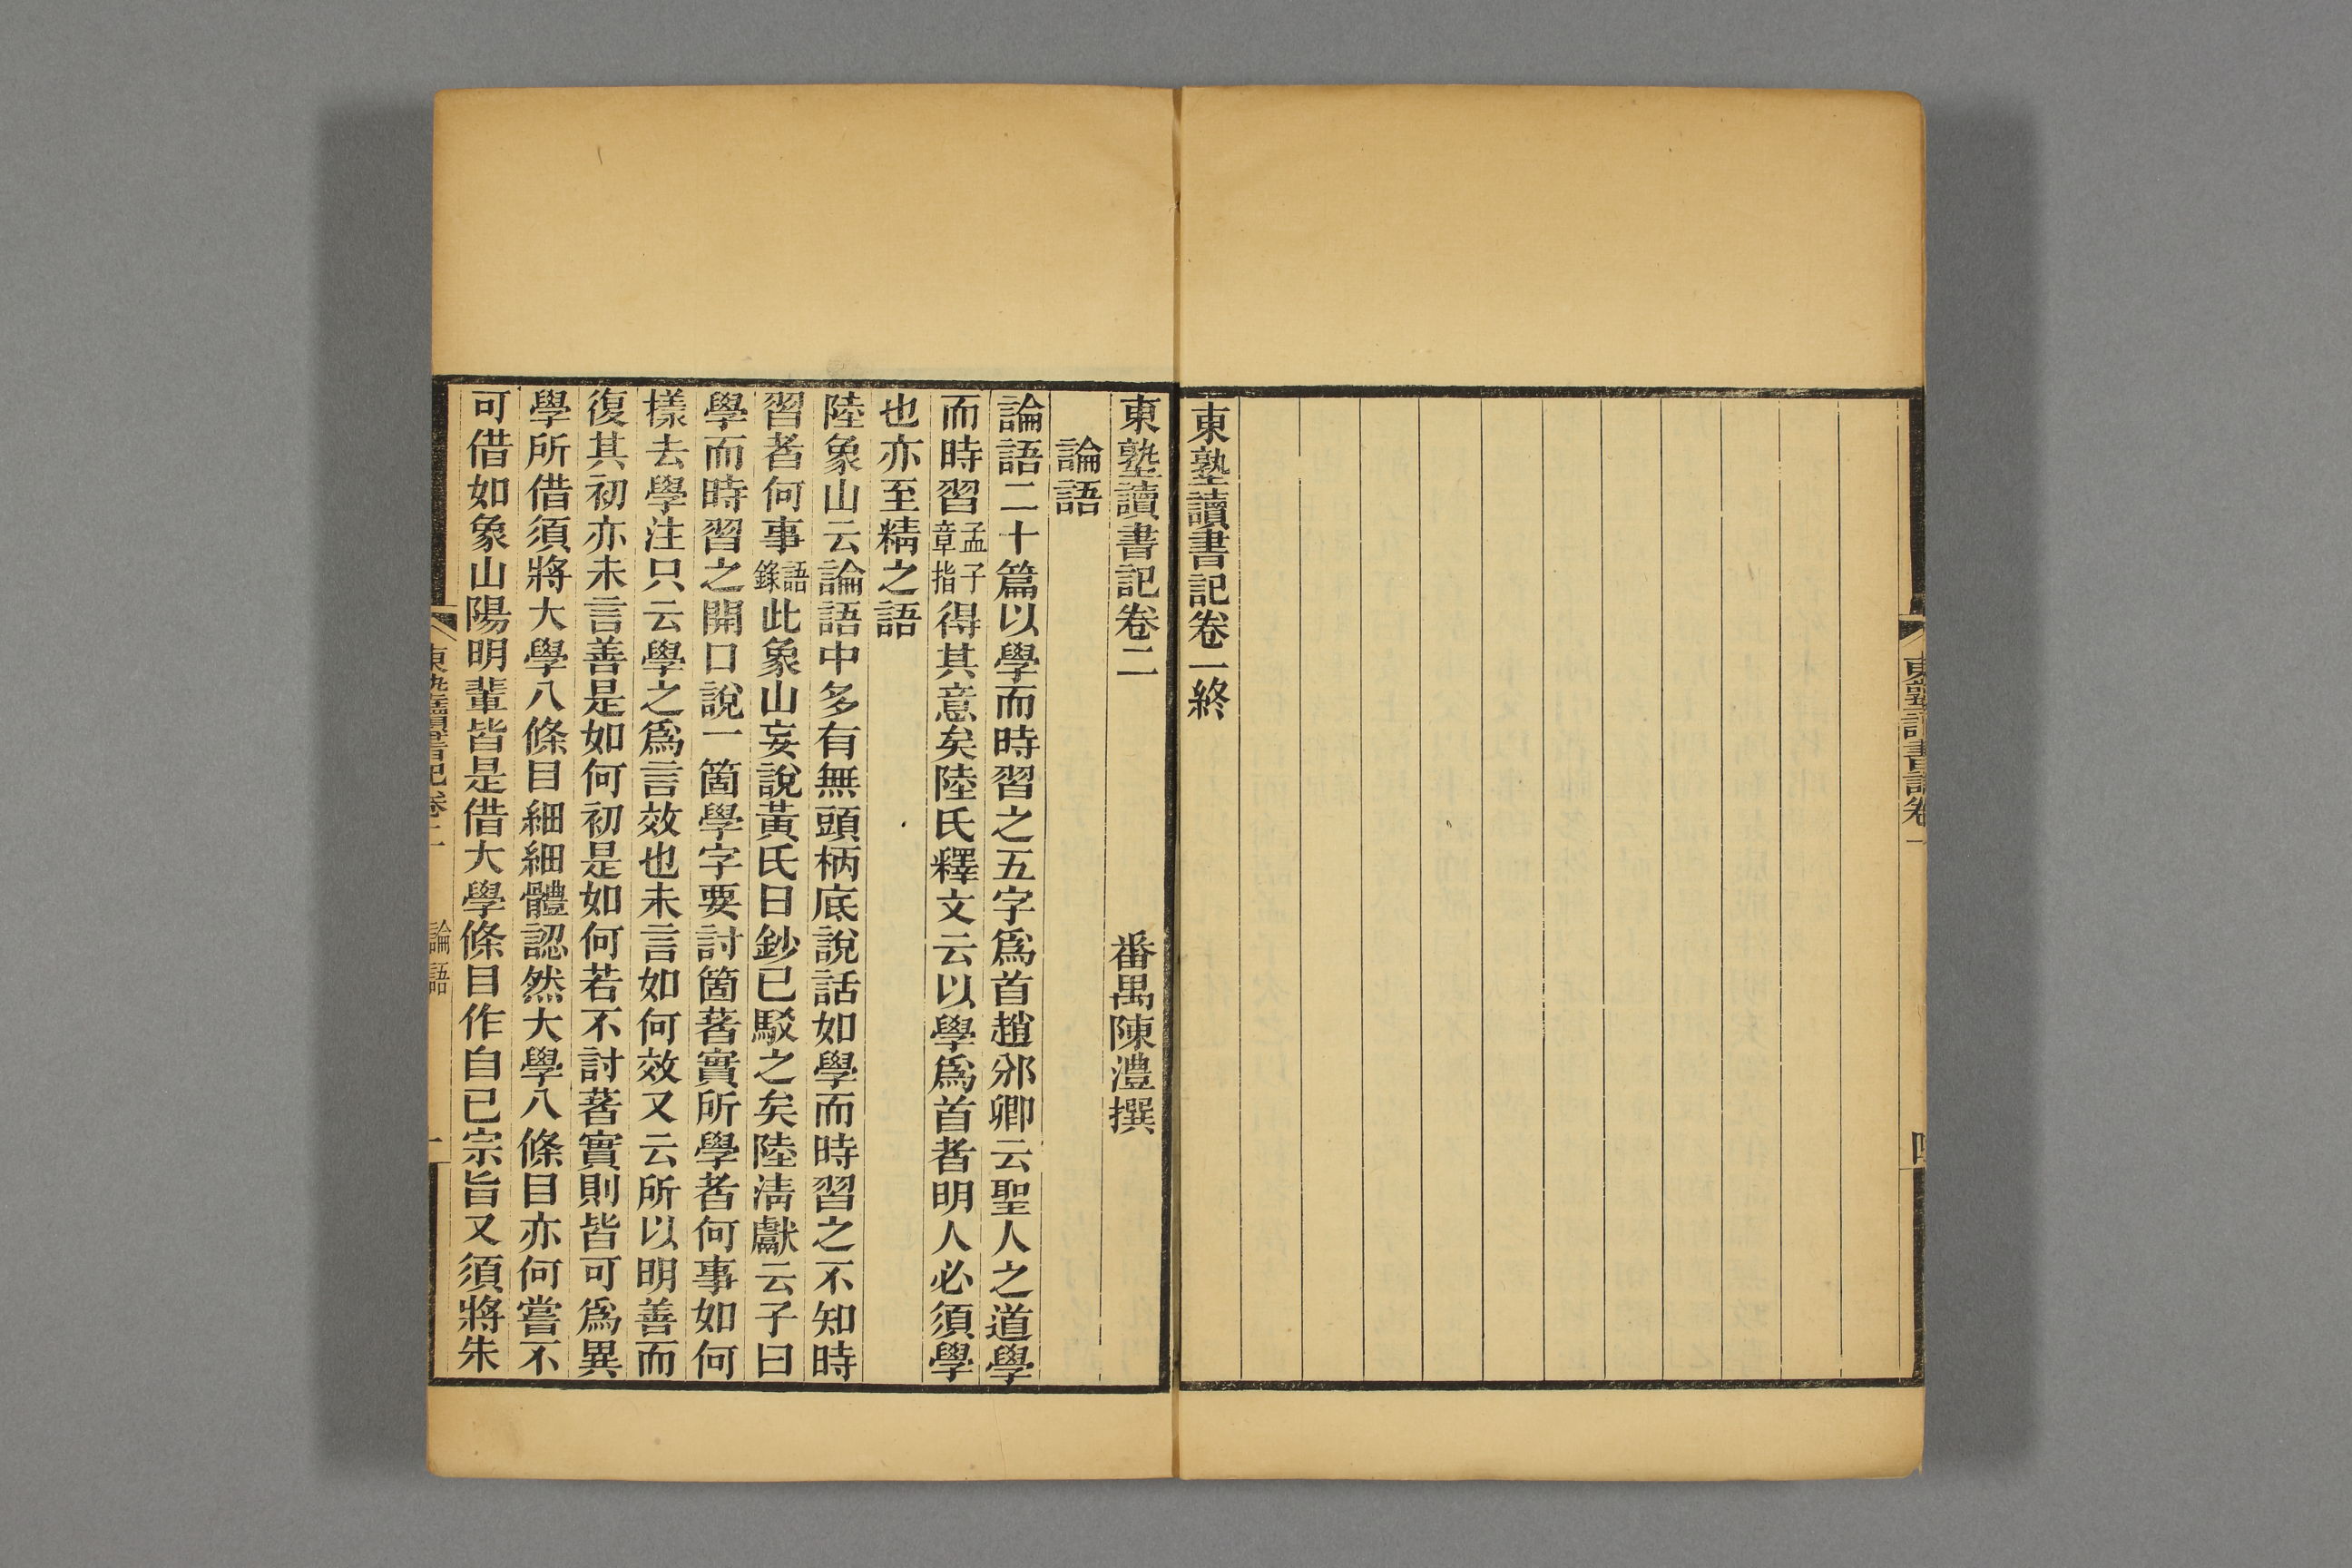 東塾讀書記卷一
東塾讀書記卷一終
東塾讀書記卷二
番禺陳澧撰
論語
論語二十篇以學而時習之五字爲首趙邠卿云聖人之道學
而時習孟子章指得其意矣陸氏釋文云以學爲首者明人必須學
也亦至精之語
陸象山云論語中多有無頭柄底說話如學而時習之不知時
習者何事語錄此象山妄說黃氏日鈔已駁之矣陸淸獻云子曰
學而時習之開口說一箇學字要討箇著實所學者何事如何
樣去學注只云學之爲言效也未言如何效又云所以明善而
復其初亦未言善是如何初是如何若不討著實則皆可爲異
學所借須將大學八條目細細體認然大學八條目亦何嘗不
可借如象山陽明輩皆是借大學條目作自己宗旨又須將朱
東塾讀書記卷二
論語
一